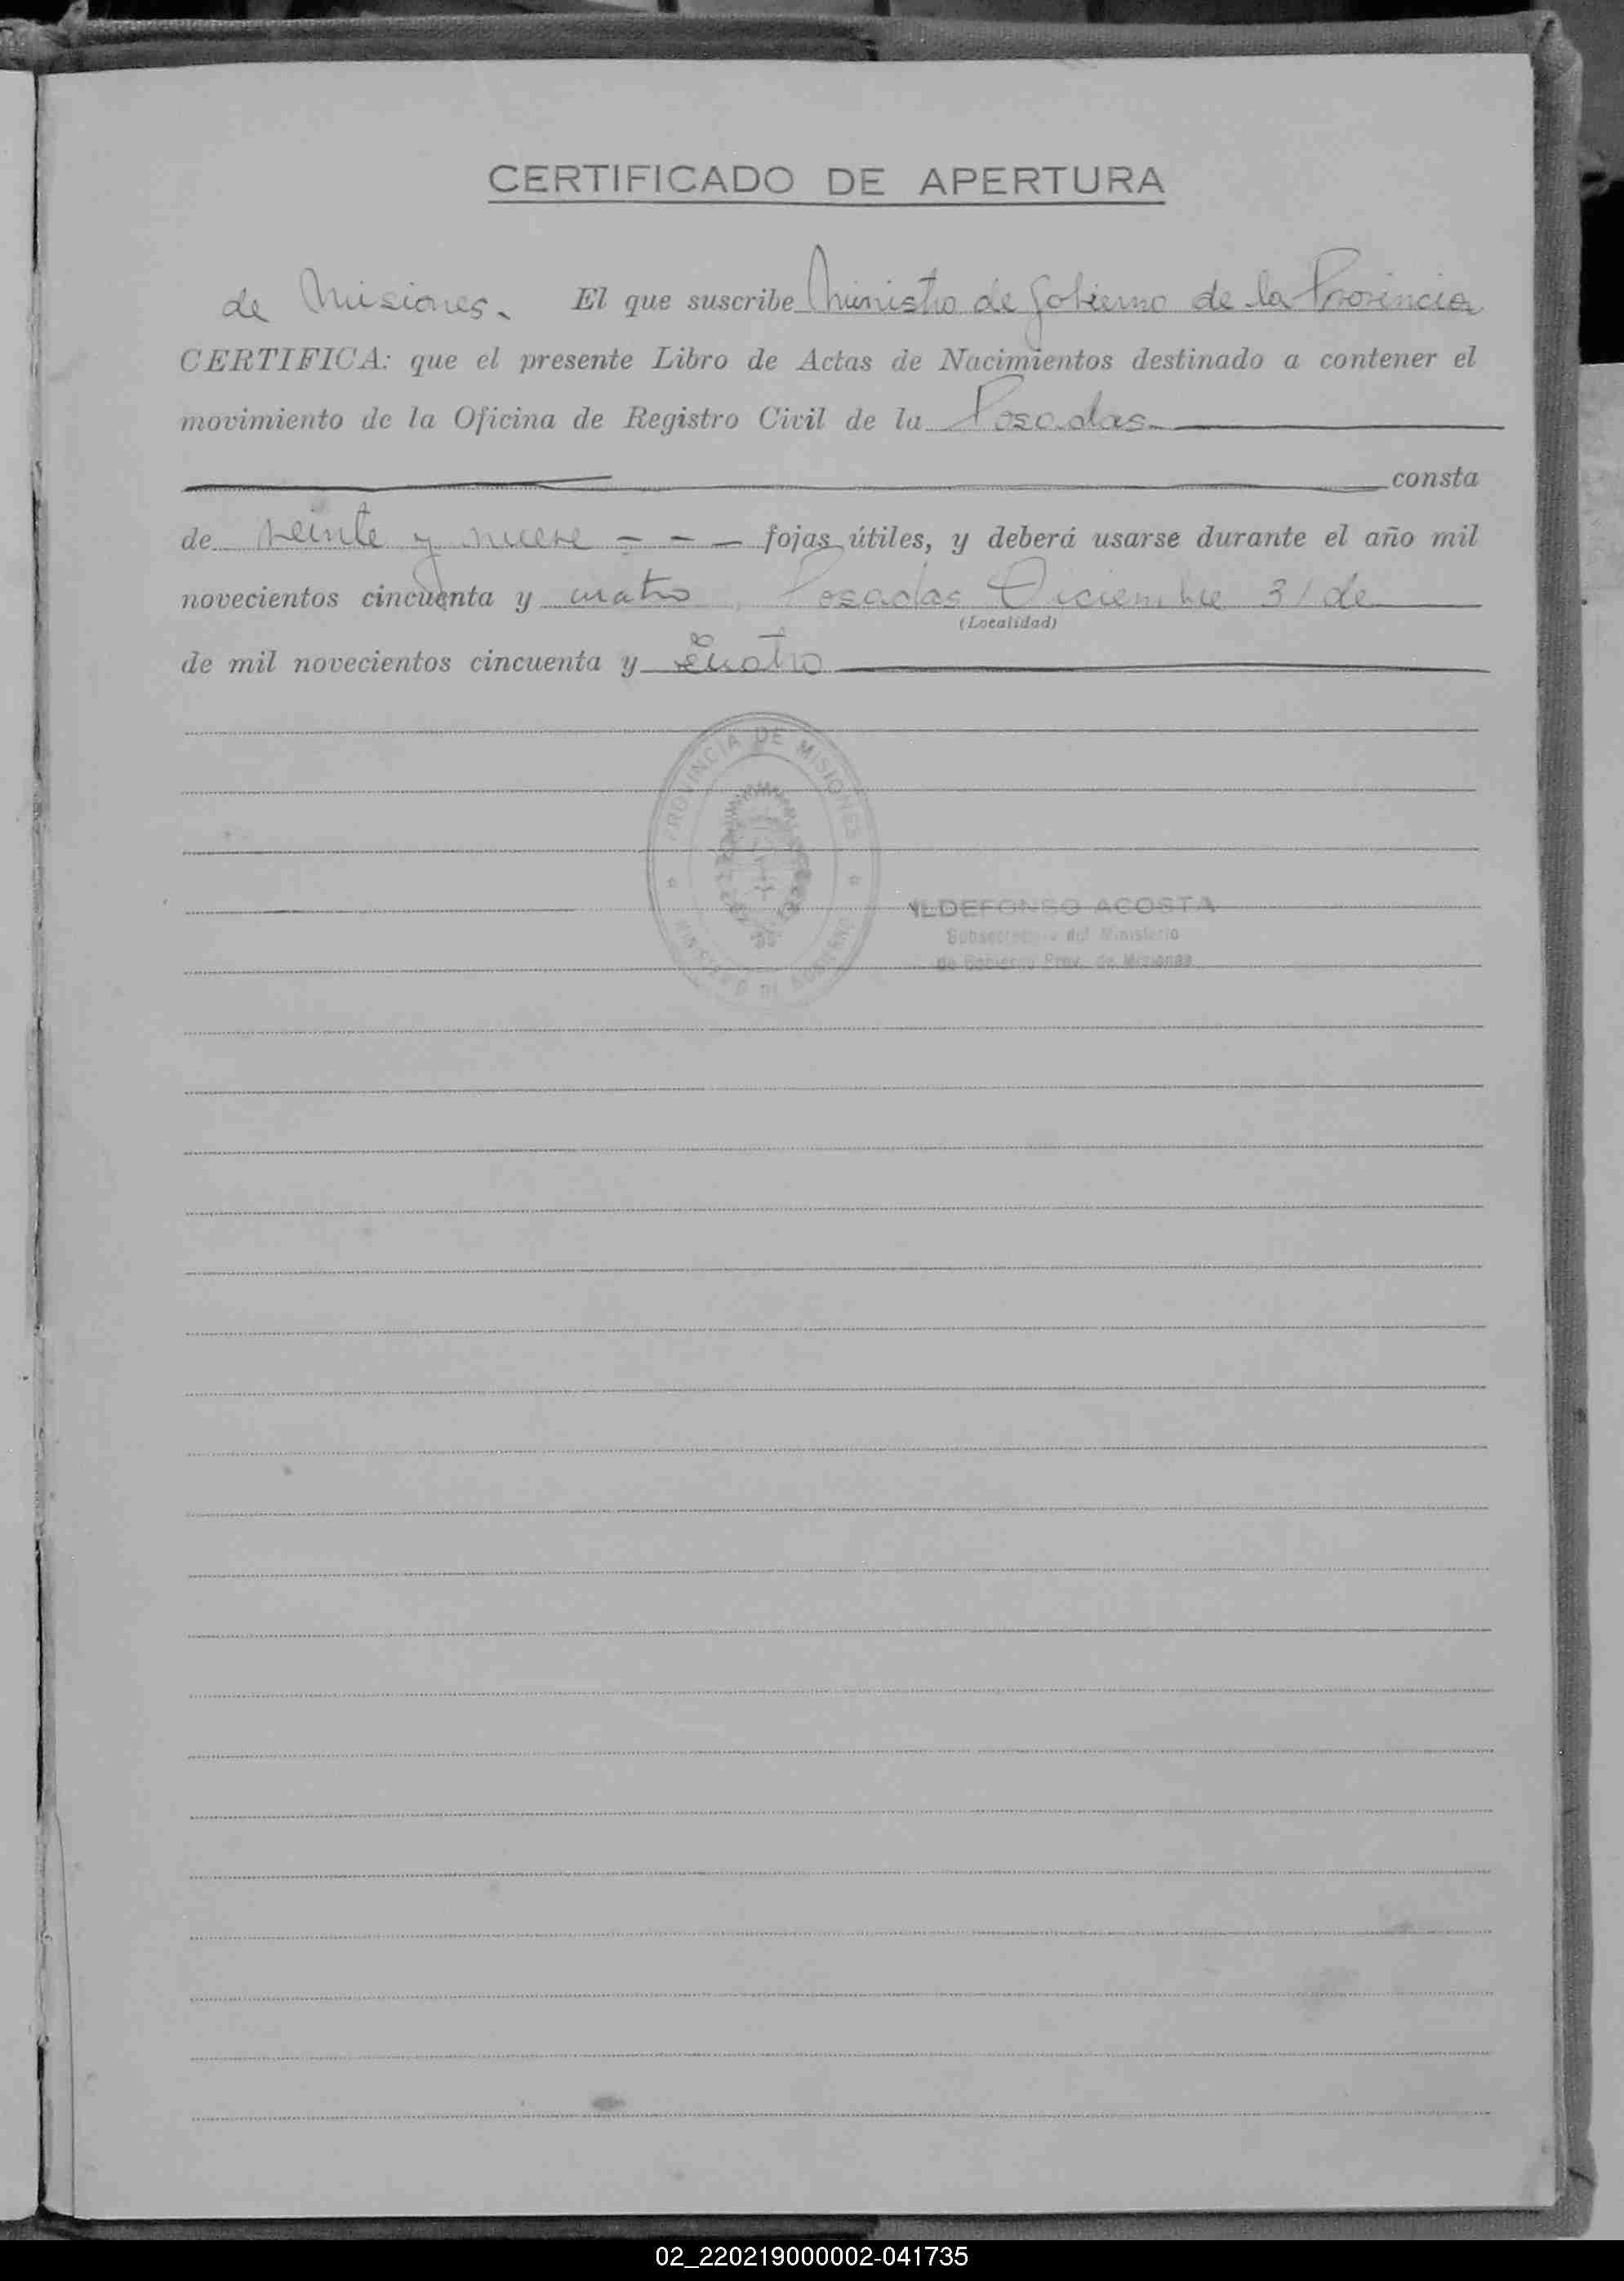 CERTIFICADO DE APERTURA
de Misiones. El que suscribe Ministro de Gobierno de la Provincia
CERTIFICA: que el presente Libro de Actas de Nacimientos destinado a contener el
movimiento de la Oficina de Registro Civil de la Posadas
consta
de veinte y nueve - - - fojas útiles, y deberá usarse durante el año mil
novecientos cincuenta y cuatro, Posadas Diciembre 31 de
(Localidad)
de mil novecientos cincuenta y cuatro
PROVINCIA DE MISIONES
MINISTERIO DE GOBIERNO
ILDEFONSO ACOSTA
Subsecretario del Ministerio
de Gobierno Prov. de Misiones
02_220219000002-041735